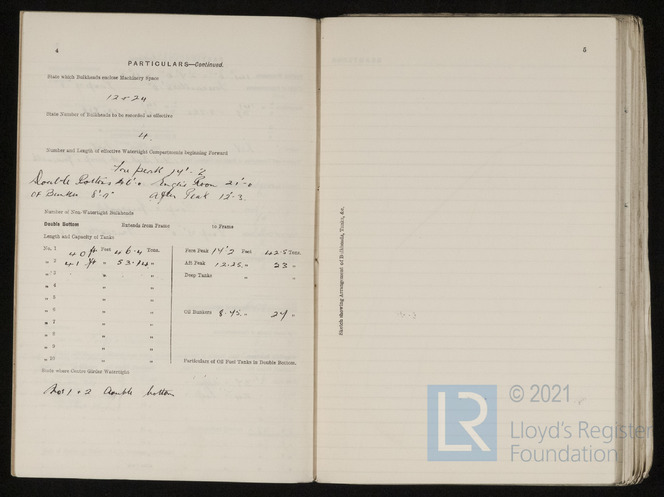 4
PARTICULARS—Continued.
State which Bulkheads enclose Machinery Space
12 & 24
State Number of Bulkheads to be recorded as effective
4.
Number and Length of effective Watertight Compartments beginning Forward
Fore peak 14'-2
Double Bottom 46'-0 Engine Room 21'-0
Oil Bunker 8'- After Peak 12'-3
Number of Non-Watertight Bulkheads
Double Bottom Extends from Frame to Frame
Length and Capacity of Tanks
No. 1 40 ft Feet 46.4 Tons.
„ 2 41 ft „ 53.14 „
„ 3 „ „
„ 4 „ „
„ 5 „ „
„ 6 „ „
„ 7 „ „
„ 8 „ „
„ 9 „ „
„ 10 „ „
Fore Peak 14'2 Feet 42.5 Tons.
Aft Peak 12.25 „ 23 „
Deep Tanks „ „
Oil Bunkers 8.45 „ 24 „
Particulars of Oil Fuel Tanks in Double Bottom.
State where Centre Girder Watertight
Nos 1 & 2 Double bottom
5
Sketch showing Arrangement of Bulkheads, Tanks, &c.
LR
© 2021
Lloyd's Register
Foundation